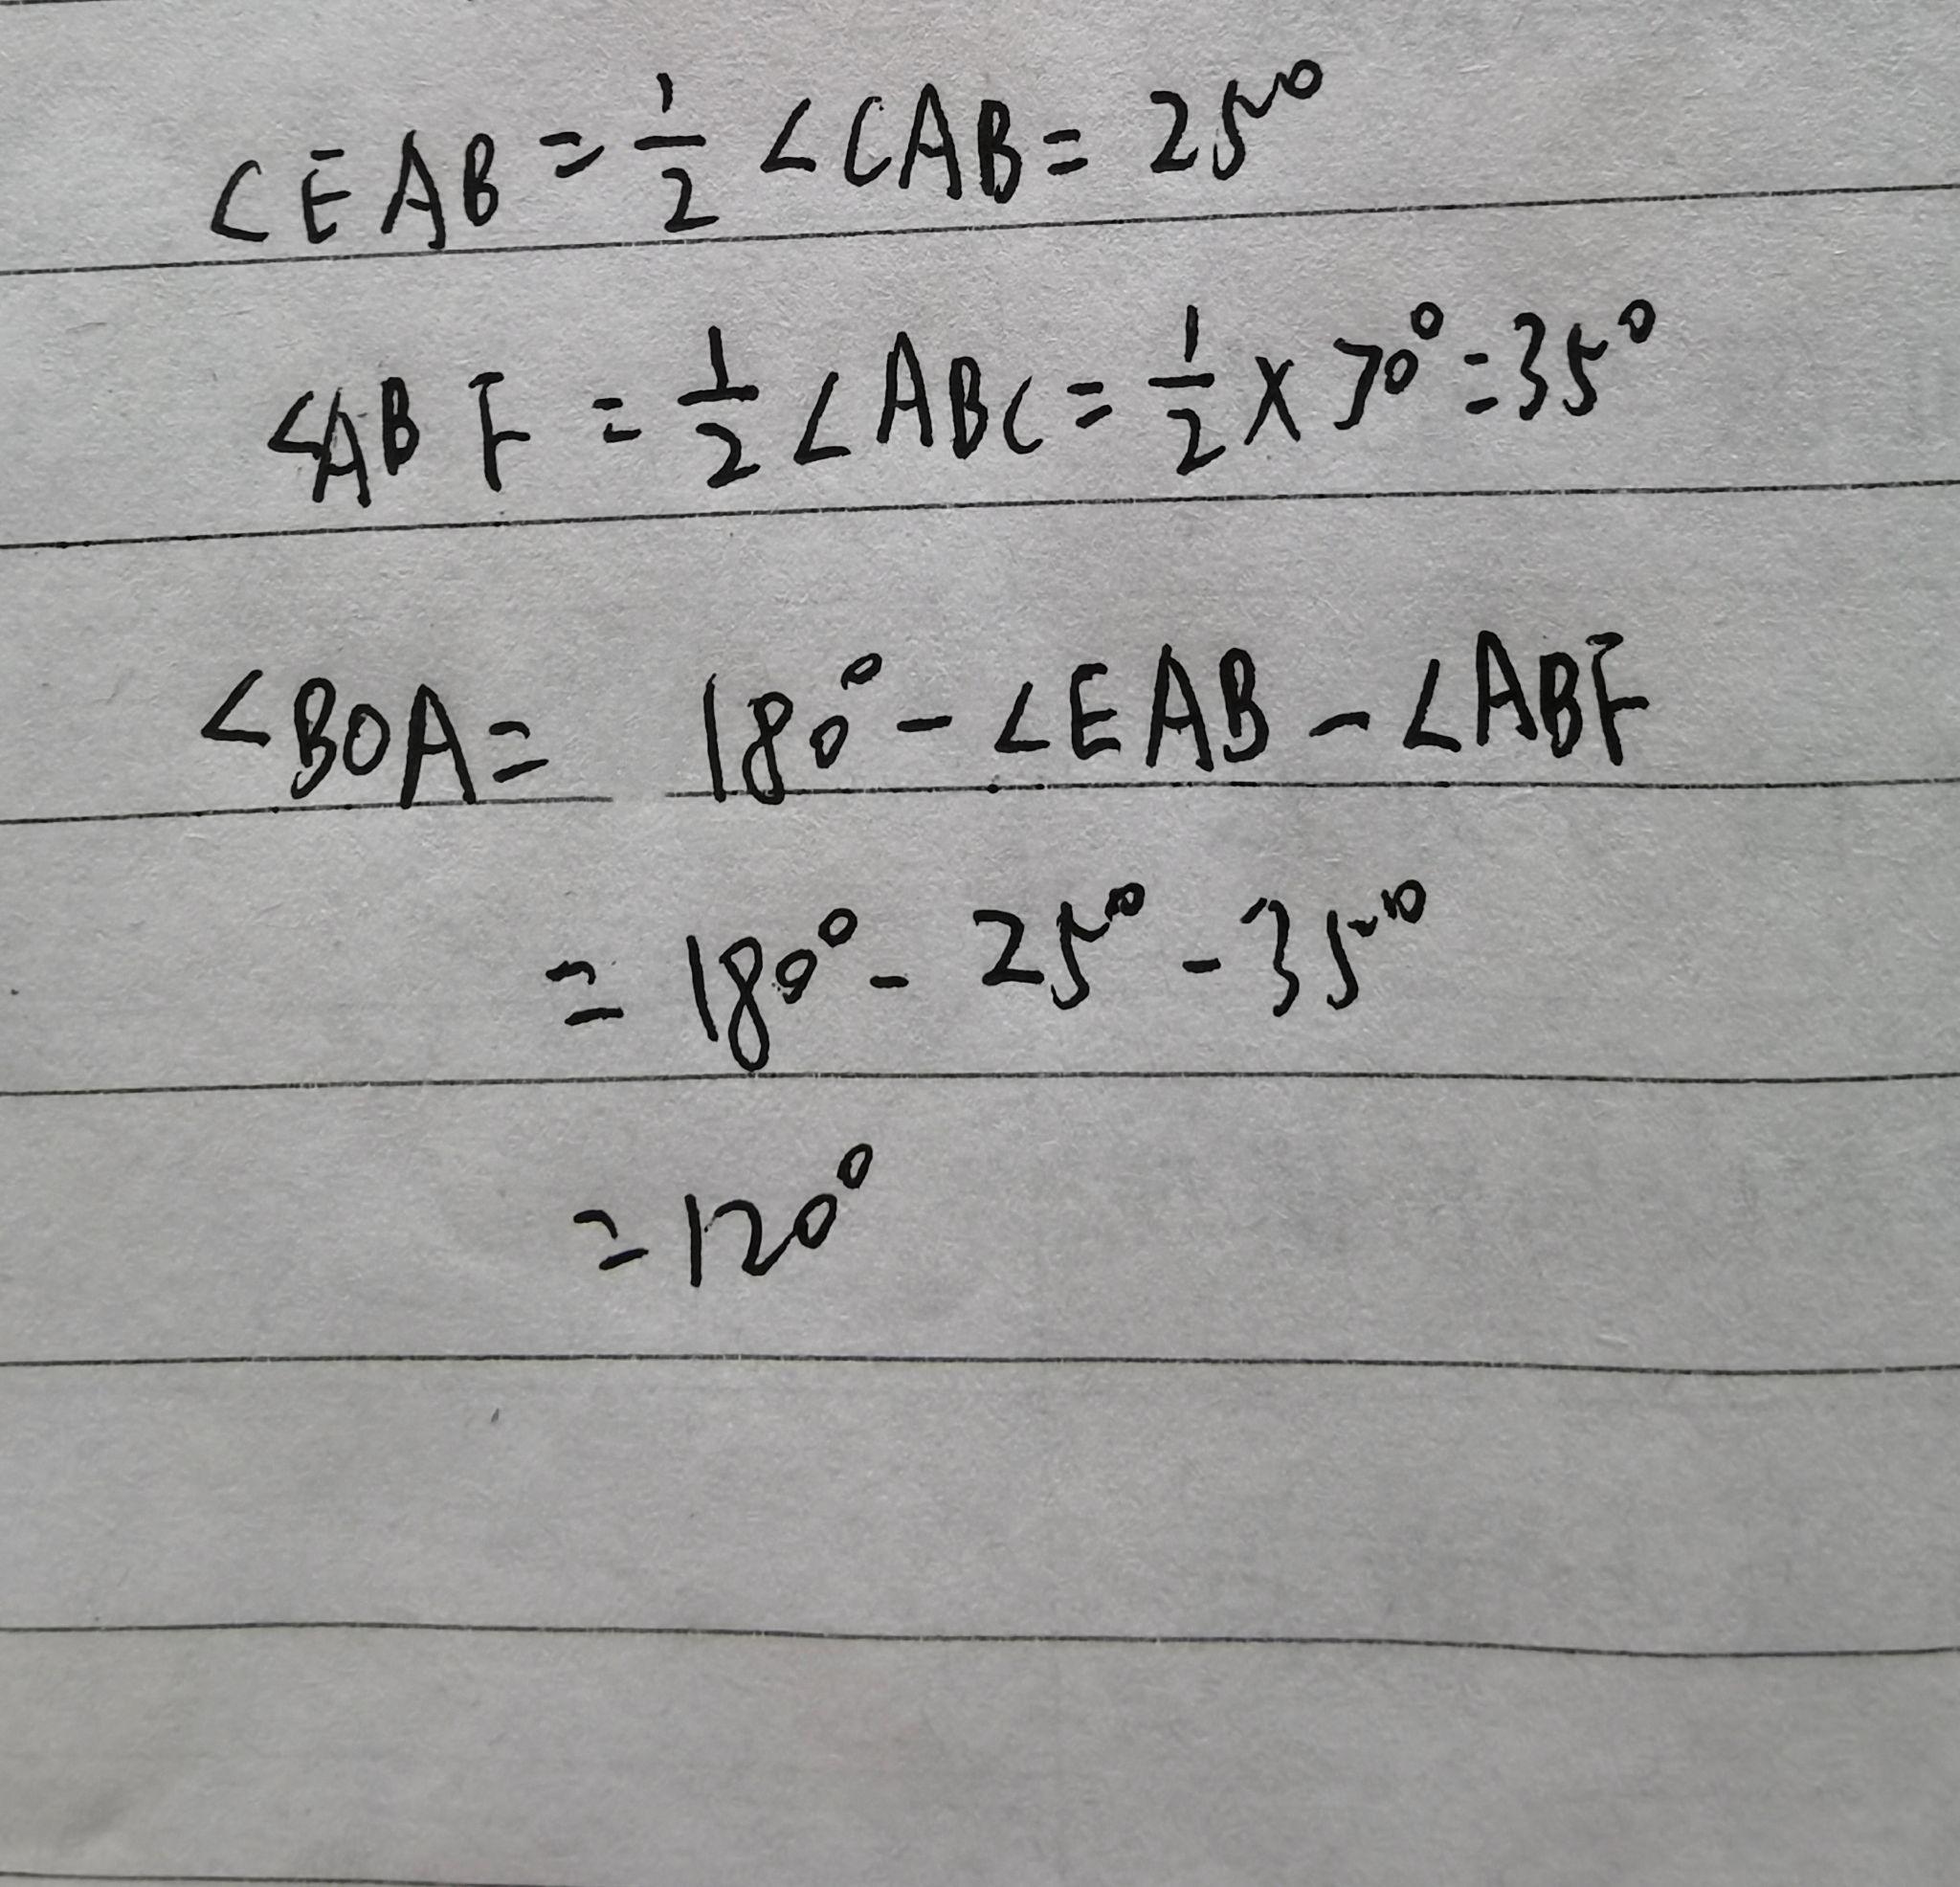 ∠EAB = 1/2 ∠CAB = 25°
∠ABF = 1/2 ∠ABC = 1/2 × 70° = 35°
∠BOA = 180° - ∠EAB - ∠ABF
= 180° - 25° - 35°
= 120°